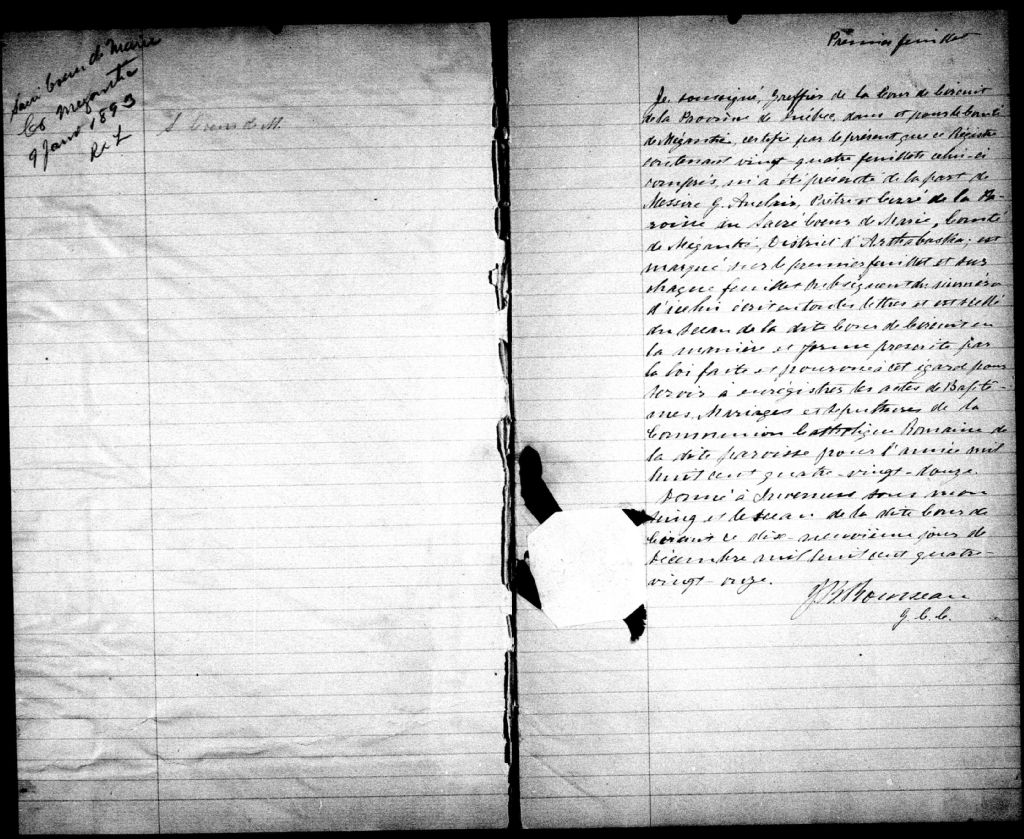 Sacré Coeur de Marie
Co Megantic
9 Janv 1893
S. Coeur de M.
Premier feuillet
Je, soussigné, Greffier de la Cour de Circuit
de la Province de Québec, dans et pour le Comté
de Mégantic, certifie par le présent que ce Régistre
contenant vingt quatre feuillets celui-ci
compris, m'a été présenté de la part de
Messire G. Auclair, Prêtre et Curé de la Pa-
roisse du Sacré Coeur de Marie, Comté
de Mégantic, District d'Arthabaska; est
marqué sur le premier feuillet et sur
chaque feuillet subséquent du numéro
d'icelui écrit en toutes lettres et est scellé
du Sceau de la dite Cour de Circuit en
la manière et forme prescrite par
la loi faite et pourvue à cet égard pour
servir à enrégistrer les actes de Baptê-
mes, Mariages et sépultures de la
Communion Catholique Romaine de
la dite paroisse pour l'année mil
huit cent quatre-vingt-douze
Donné à Inverness sous mon
seing et le sceau de la dite Cour de
Circuit ce dix-neuvième jour de
Décembre mil huit cent quatre-
vingt-onze.
J B Rousseau
G. C. C.